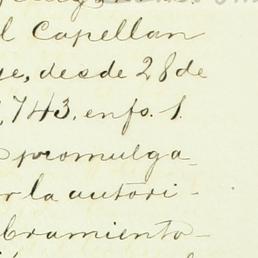 l Capellan
ge, desde 28 de
1,743, en fs. 1.
promulga
r la autori-
bramiento